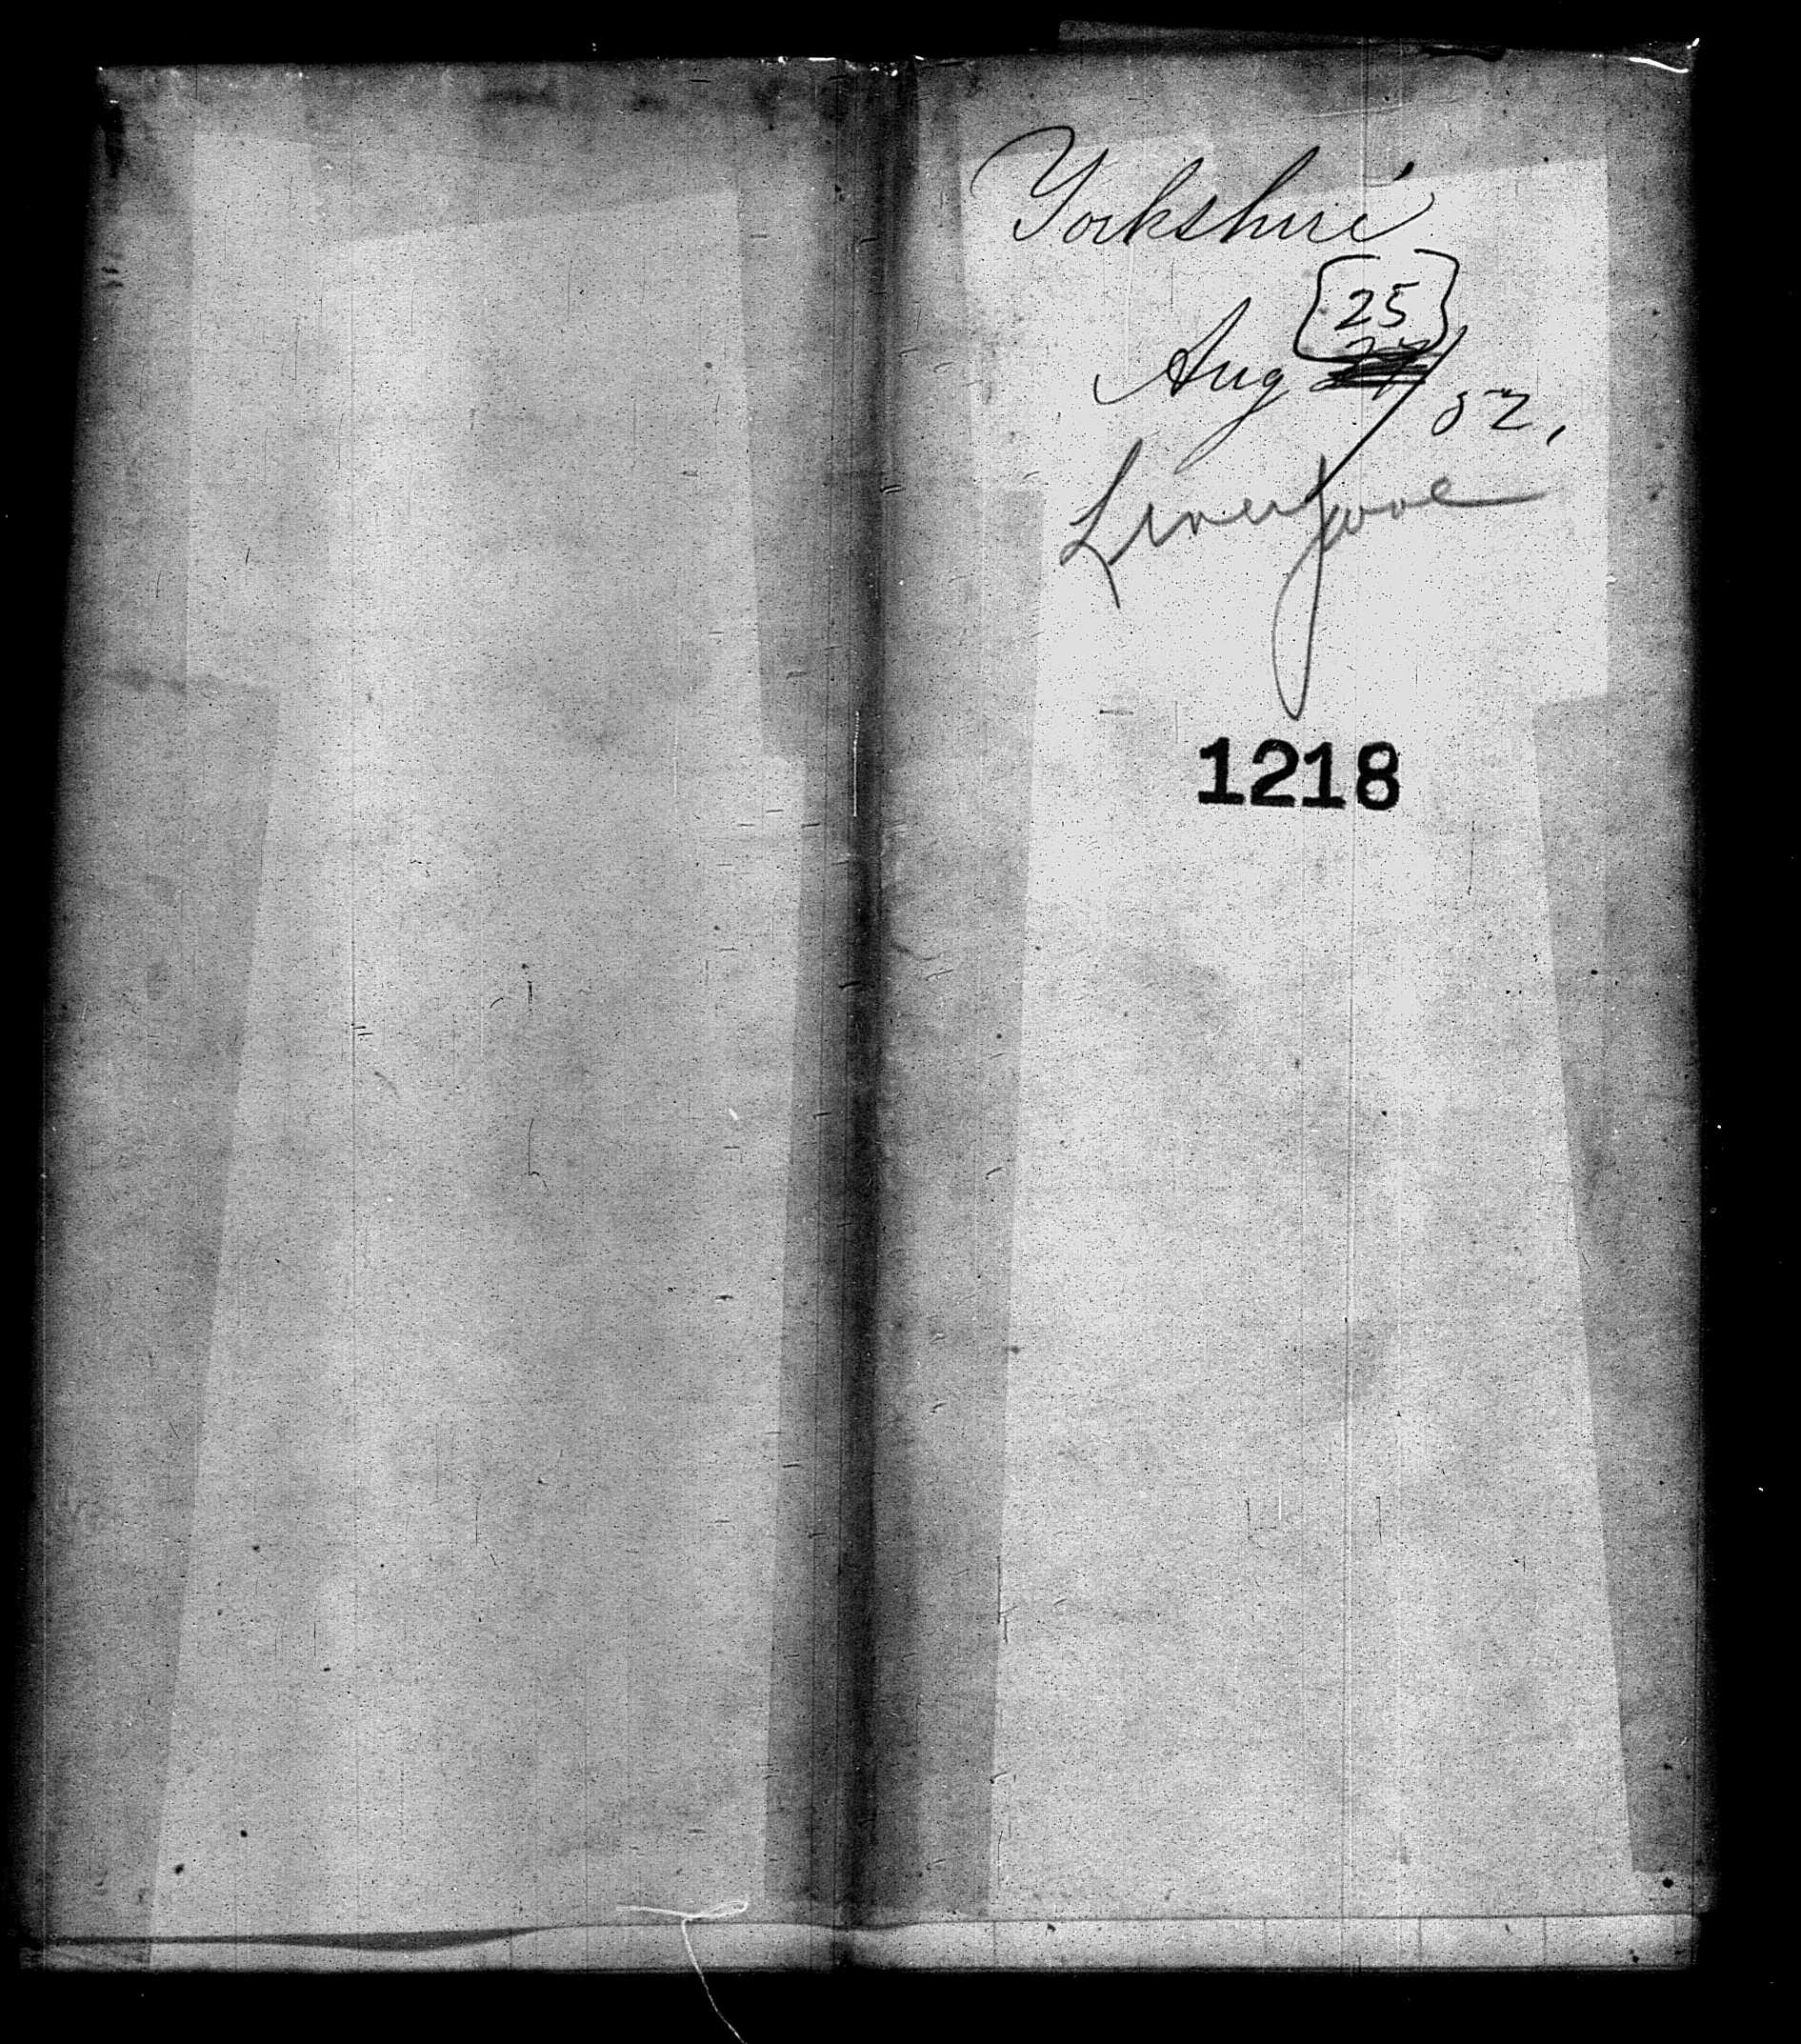 Yorkshire
25
Aug 27/02.
Liverpool
1218